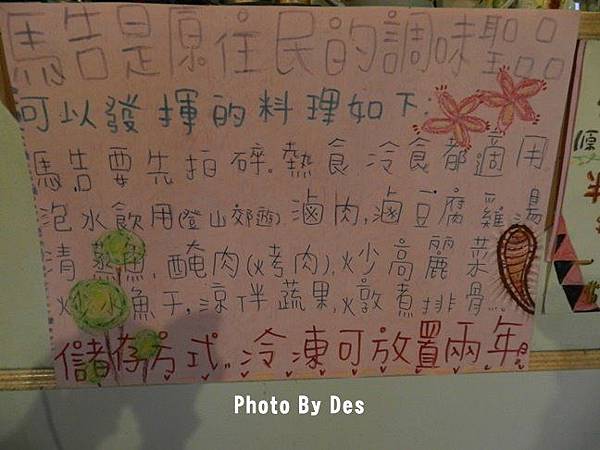 馬告是原住民的調味聖品
可以發揮的料理如下:
馬告要先拍碎。熱食冷食都適用
泡水飲用(登山郊遊)滷肉,滷豆腐雞湯
清蒸魚,醃肉(烤肉),炒高麗菜
炒小魚干,涼伴蔬果,燉煮排骨...
儲存方式..冷凍可放置兩年
Photo By Des
原